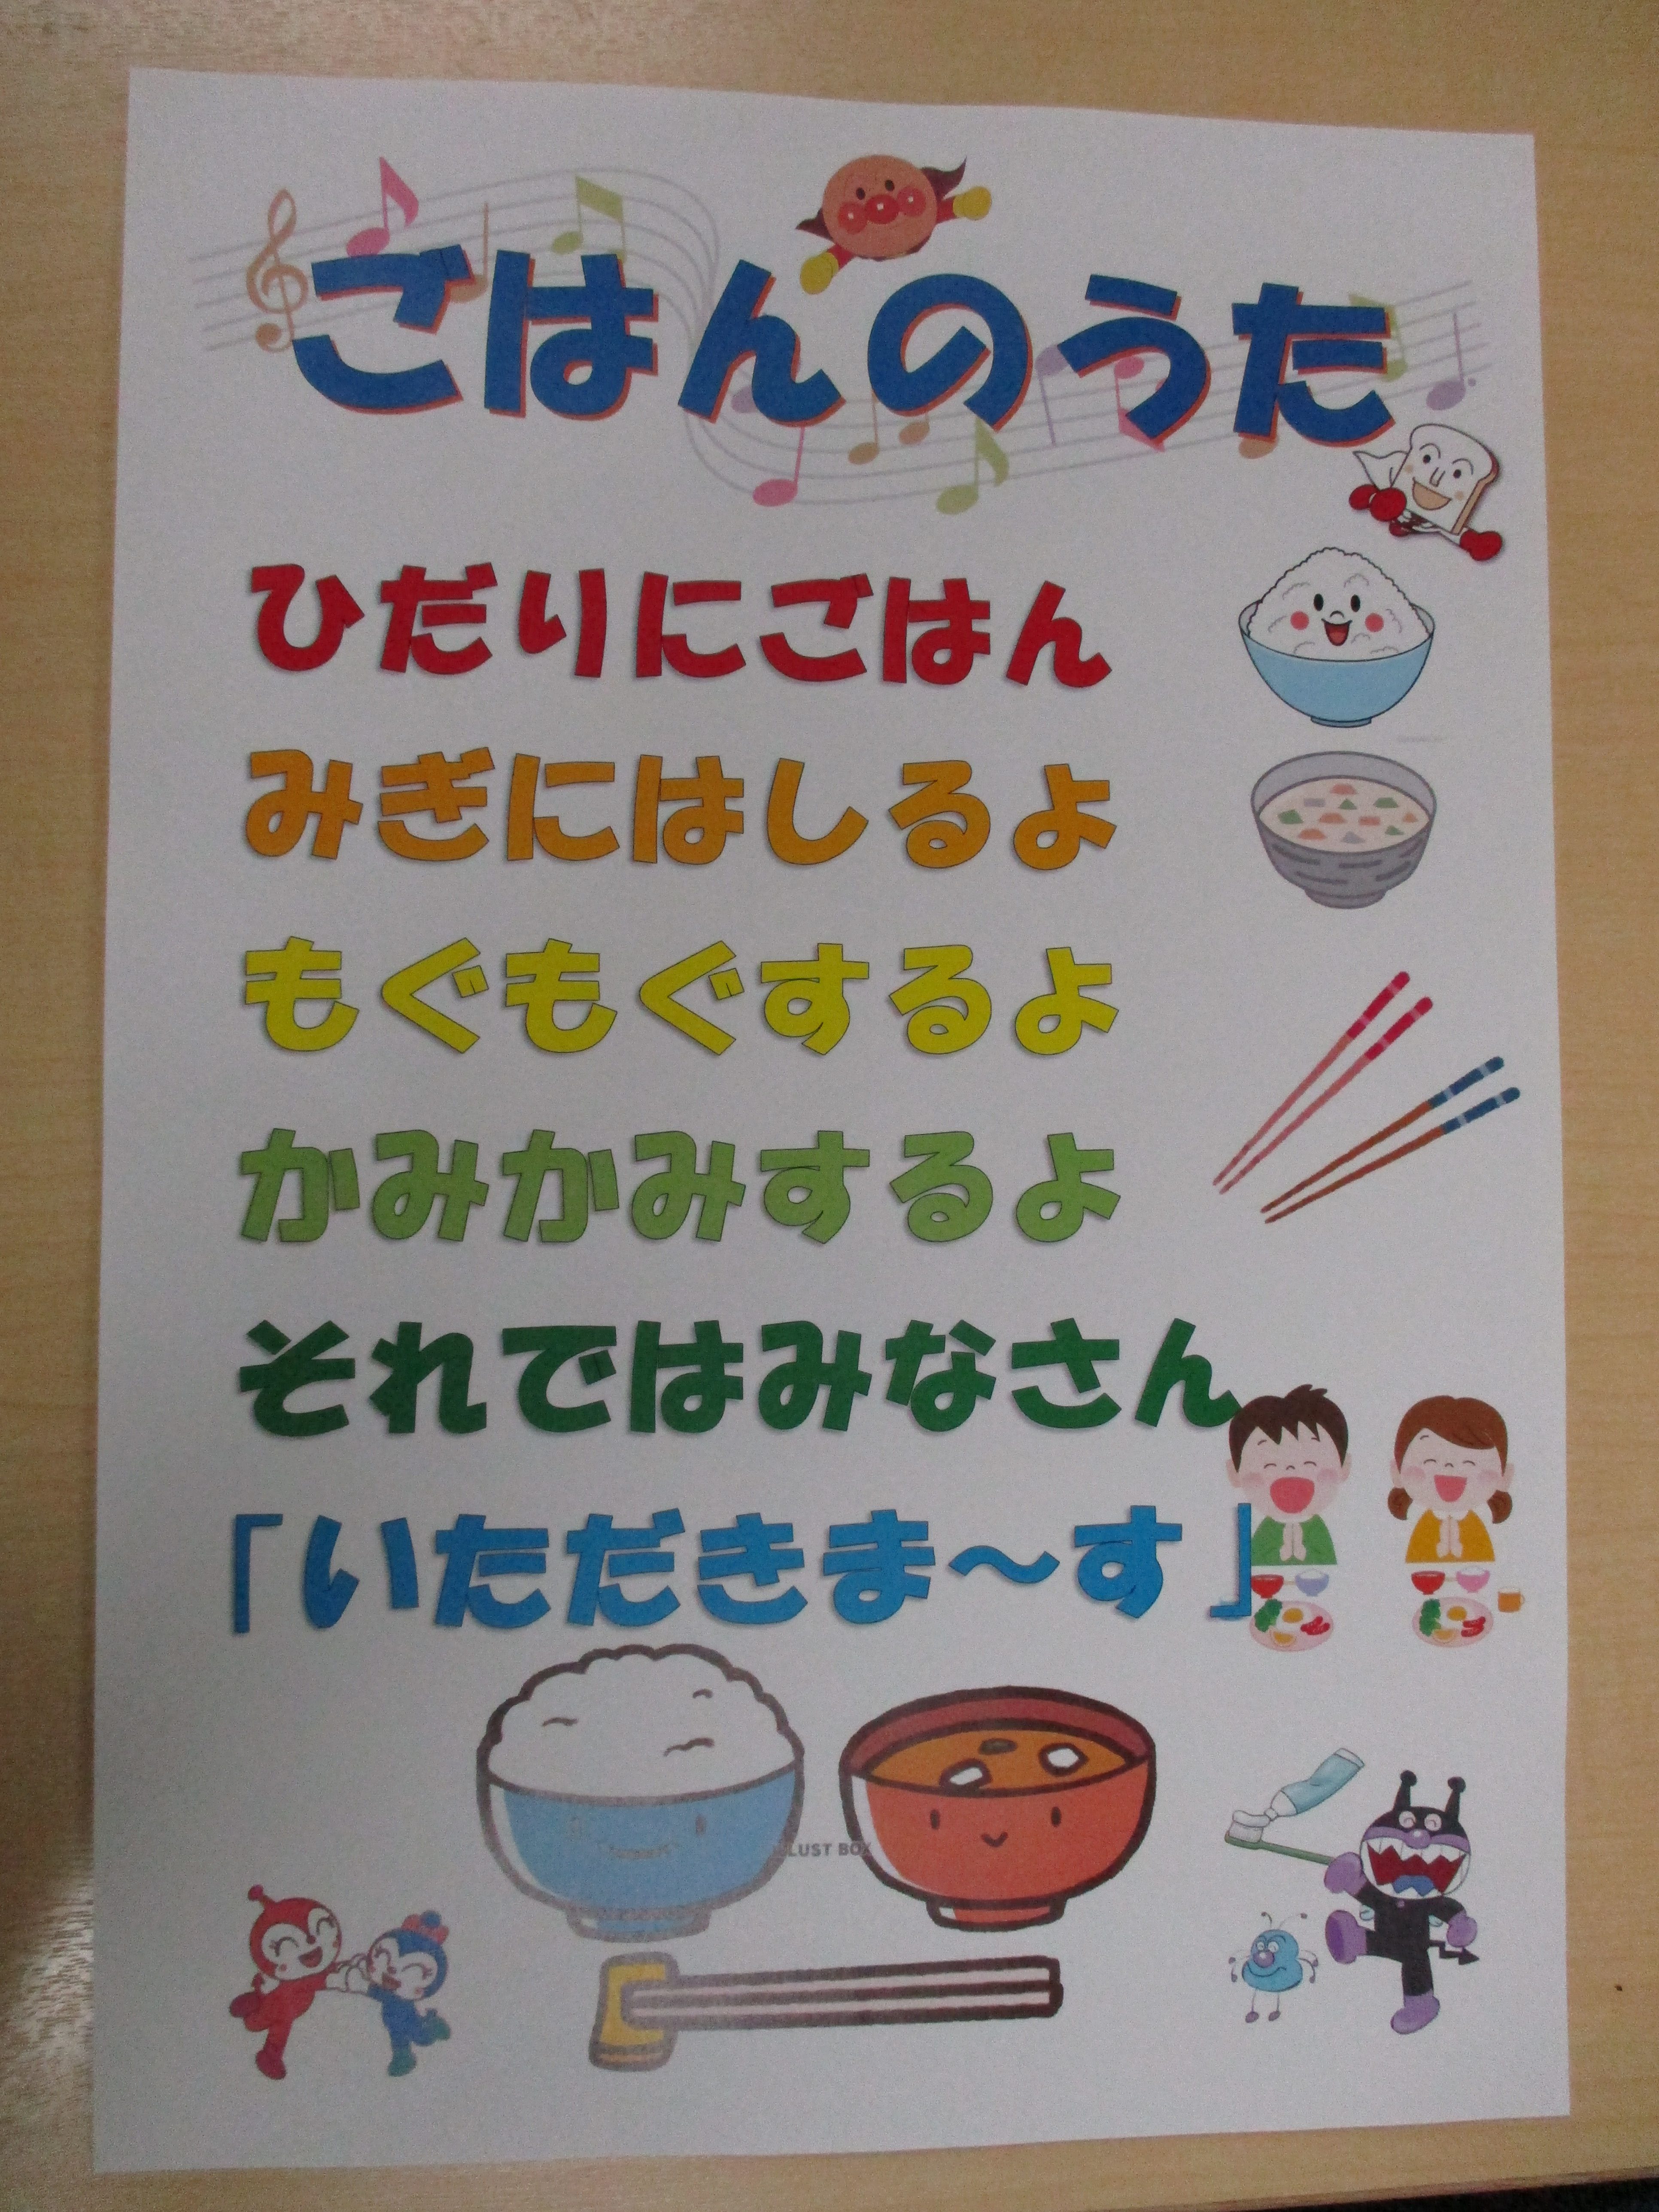 ごはんのうた
ひだりにごはん
みぎにはしるよ
もぐもぐするよ
かみかみするよ
それではみなさん
「いただきま～す」
LUST BOX